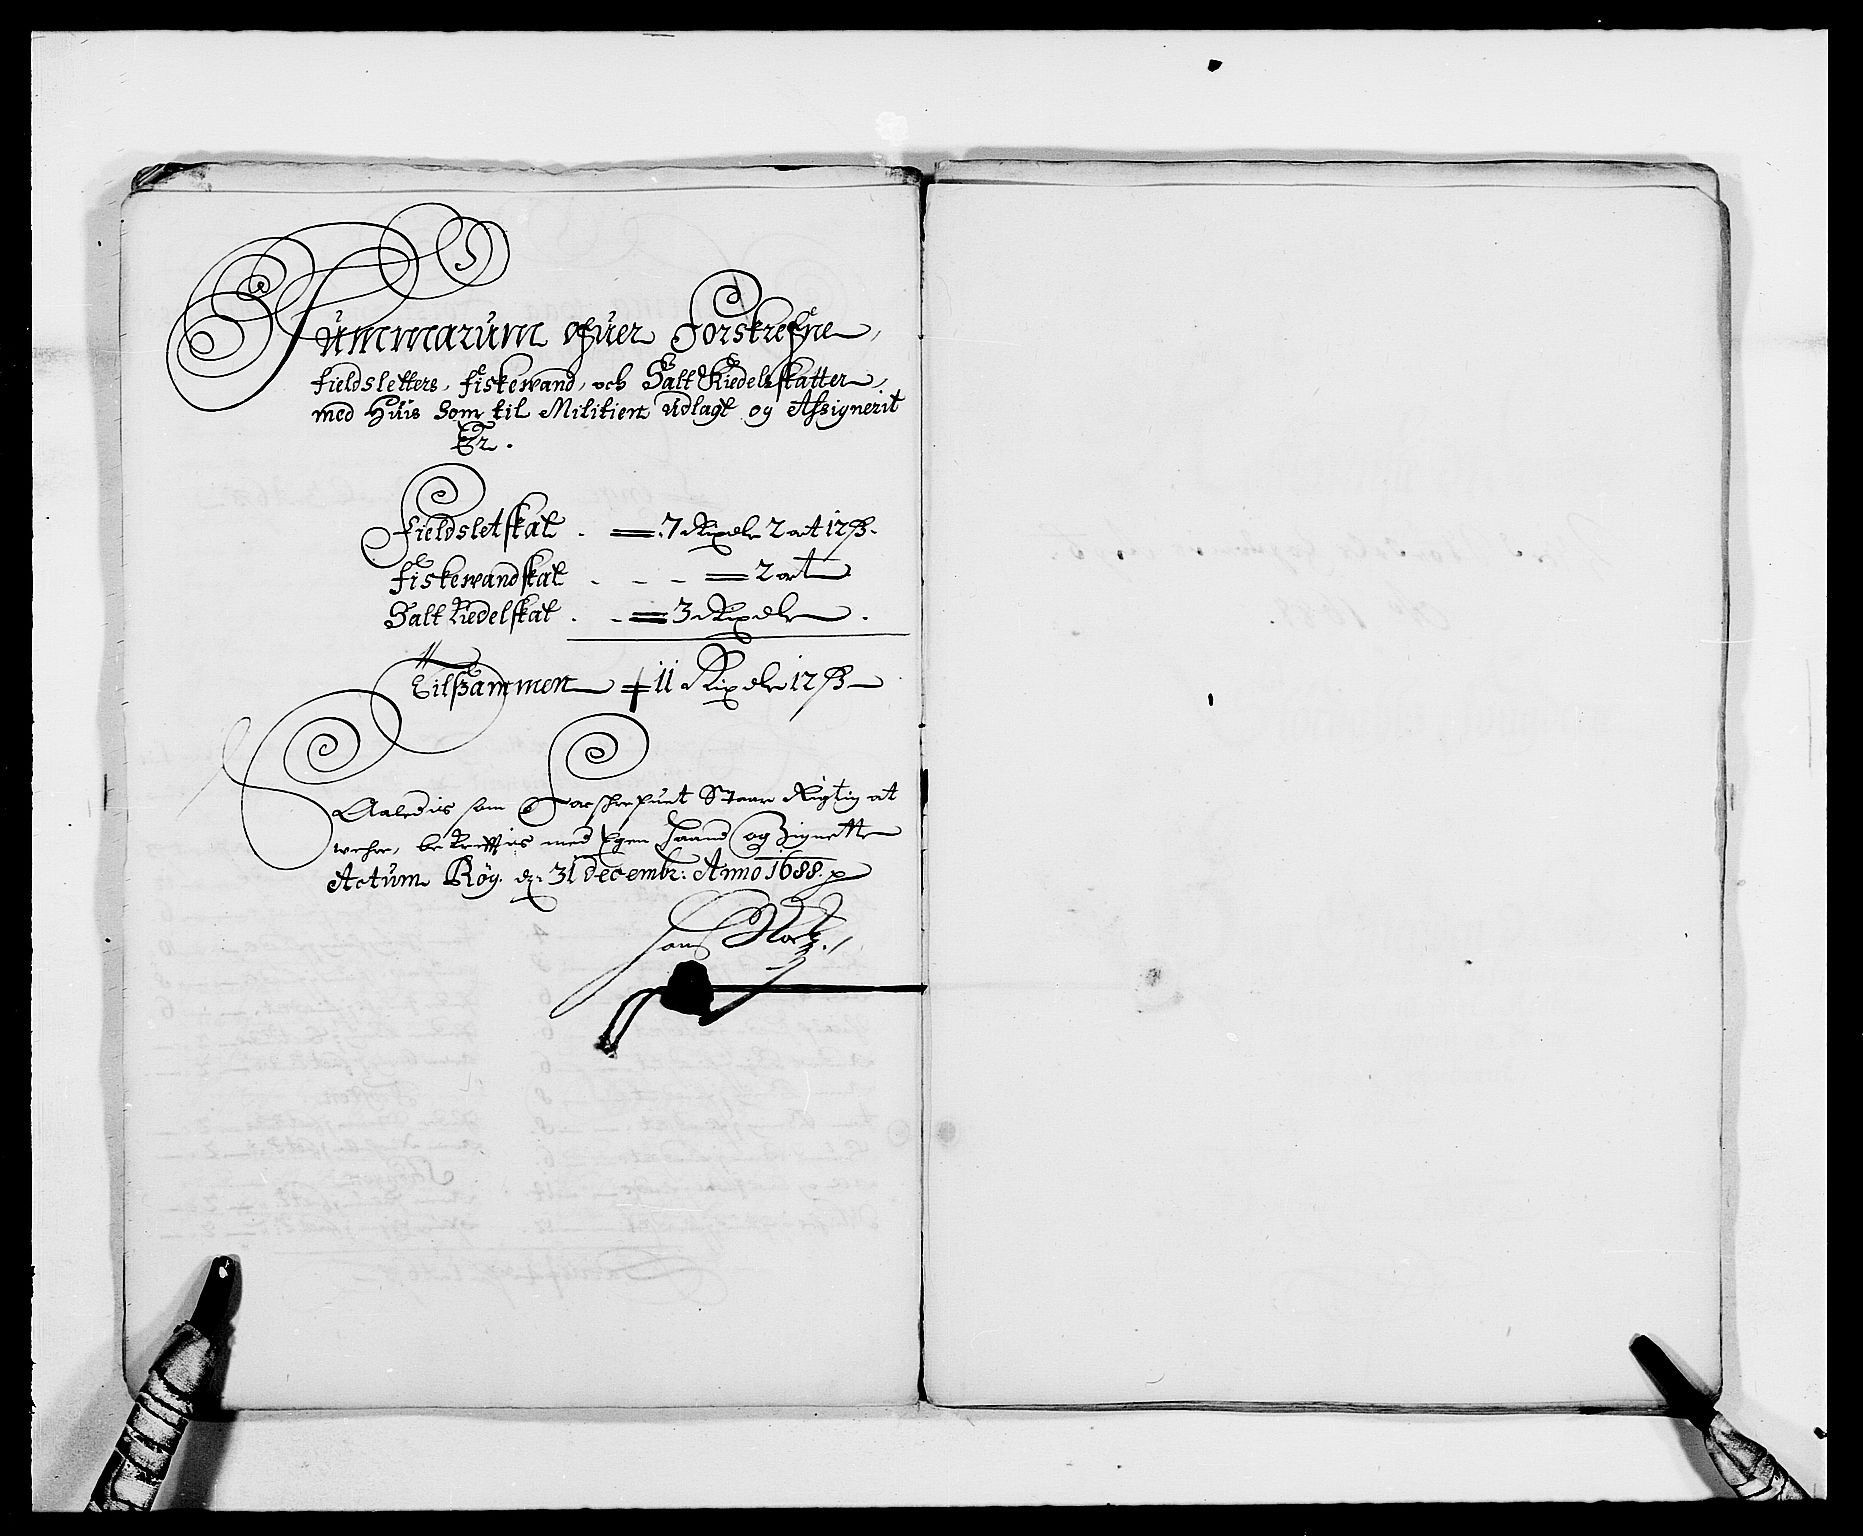 Summarum ofuer Forskrefne,
fieldsletters, fiskewand, och Salt Kiedelskatter,
med Huis Som til Militien Udlagt og Assignerit
Er.
Fieldsletskat . = 7 Rixdlr 2 ort 12 ß.
fiskewandskat . - - = 2 ort
Salt Kiedelskat . - = 3 Rixdlr .
Tilsammen 11 Rixdlr 12 ß
Saaledis som Forschrefuet Staar Rigtig at
wehre, bekreftis med Egen Haand og Zignette
Actum Röy. dn: 31 decembr: Anno 1688.